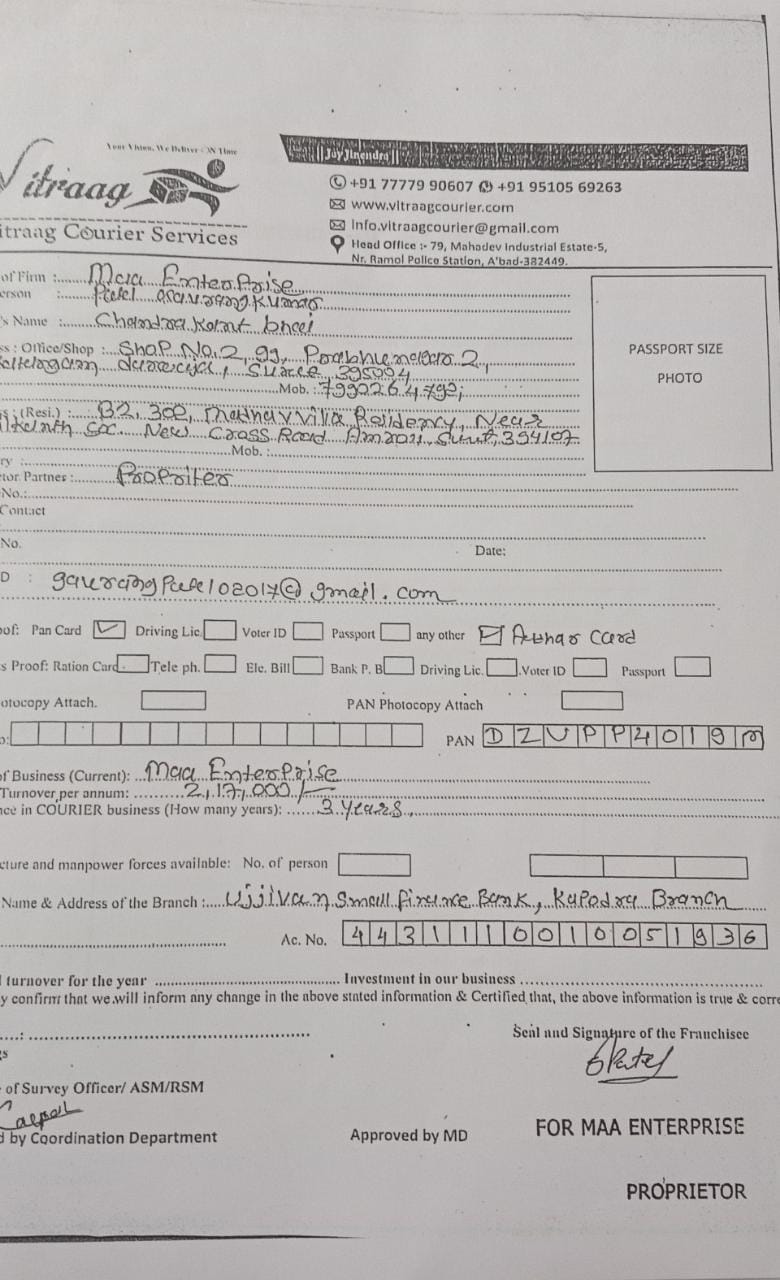 Your Vision, We Deliver ON Time
|| Jay Jinendra ||
Vitraag
+91 77779 90607 +91 95105 69263
www.vitraagcourier.com
info.vitraagcourier@gmail.com
itraag Courier Services
Head Office :- 79, Mahadev Industrial Estate-5,
Nr. Ramol Police Station, A'bad-382449.
of Firm : Maa EnterPrise
erson : Patel Gaurangkumar
's Name : Chandrakant bhai
PASSPORT SIZE
PHOTO
ss : Office/Shop : ShoP No. 2, 99, Prabhunagar 2,
Surat 395004
Mob. :
s : (Resi.) : B2, 302, Residency, Near
Soc. New Cross Road Amroli, Surat, 394107
Mob. :
ry :
tor Partner : ProPriter
No.:
Contact
No. Date:
D : gaurangPatel02017@gmail.com
oof: Pan Card Driving Lic. Voter ID Passport any other Card
s Proof: Ration Card Tele ph. Ele. Bill Bank P. B Driving Lic. Voter ID Passport
otocopy Attach. PAN Photocopy Attach
o: PAN DZVPP4019
of Business (Current): Maa EnterPrise
Turnover per annum: 2,17,000/-
nce in COURIER business (How many years): 3 Years,
cture and manpower forces available: No. of person
Name & Address of the Branch : Ujjivan Small Finance Bank, Kapodra Branch
Ac. No. 4431110010051936
l turnover for the year Investment in our business
y confirm that we will inform any change in the above stated information & Certified that, the above information is true & corre
Seal and Signature of the Franchisee
s
of Survey Officer/ ASM/RSM
d by Coordination Department Approved by MD FOR MAA ENTERPRISE
PROPRIETOR